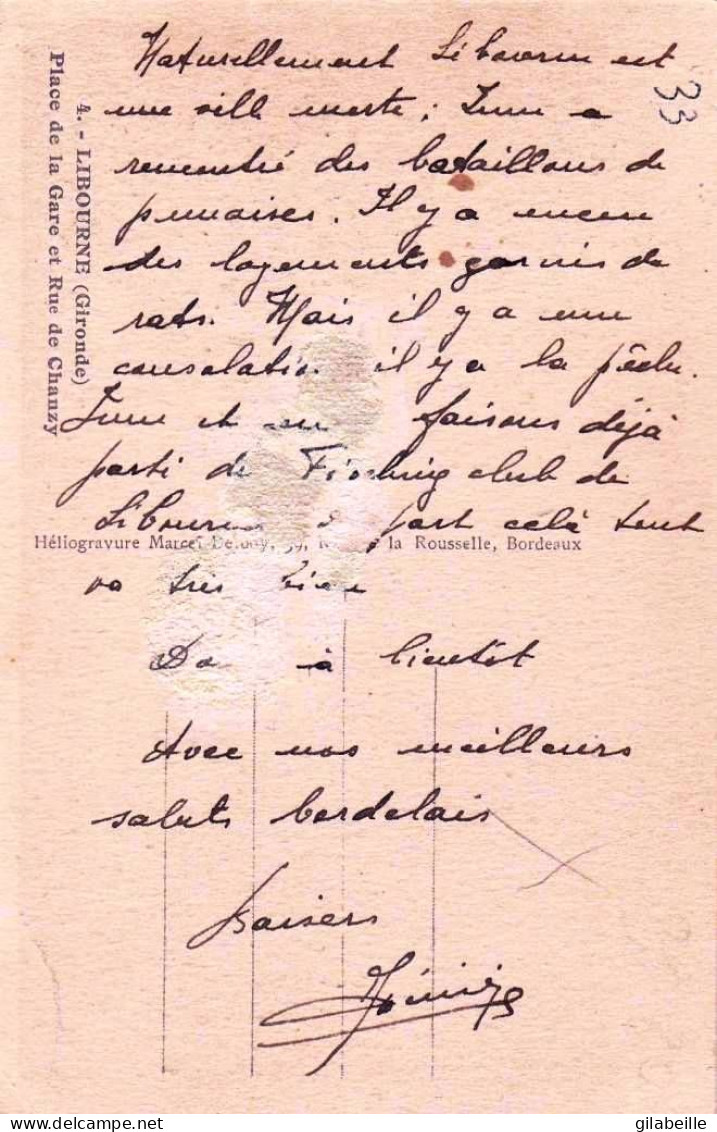 Naturellement Libourne est
une ville morte ; a
rencontré des bataillons de
punaises. Il y a encore
des logements garnis de
rats. Mais il y a une
consolation il y a la pêche.
et faisons déjà
parti de Fishing club de
Libourne part celà tout
va très bien
à bientôt
Avec nos meilleurs
saluts bordelais
Baisers
33
4. - LIBOURNE (Gironde)
Place de la Gare et Rue de Chanzy
Héliogravure Marcel 39, la Rousselle, Bordeaux
delcampe.net
gilabeille